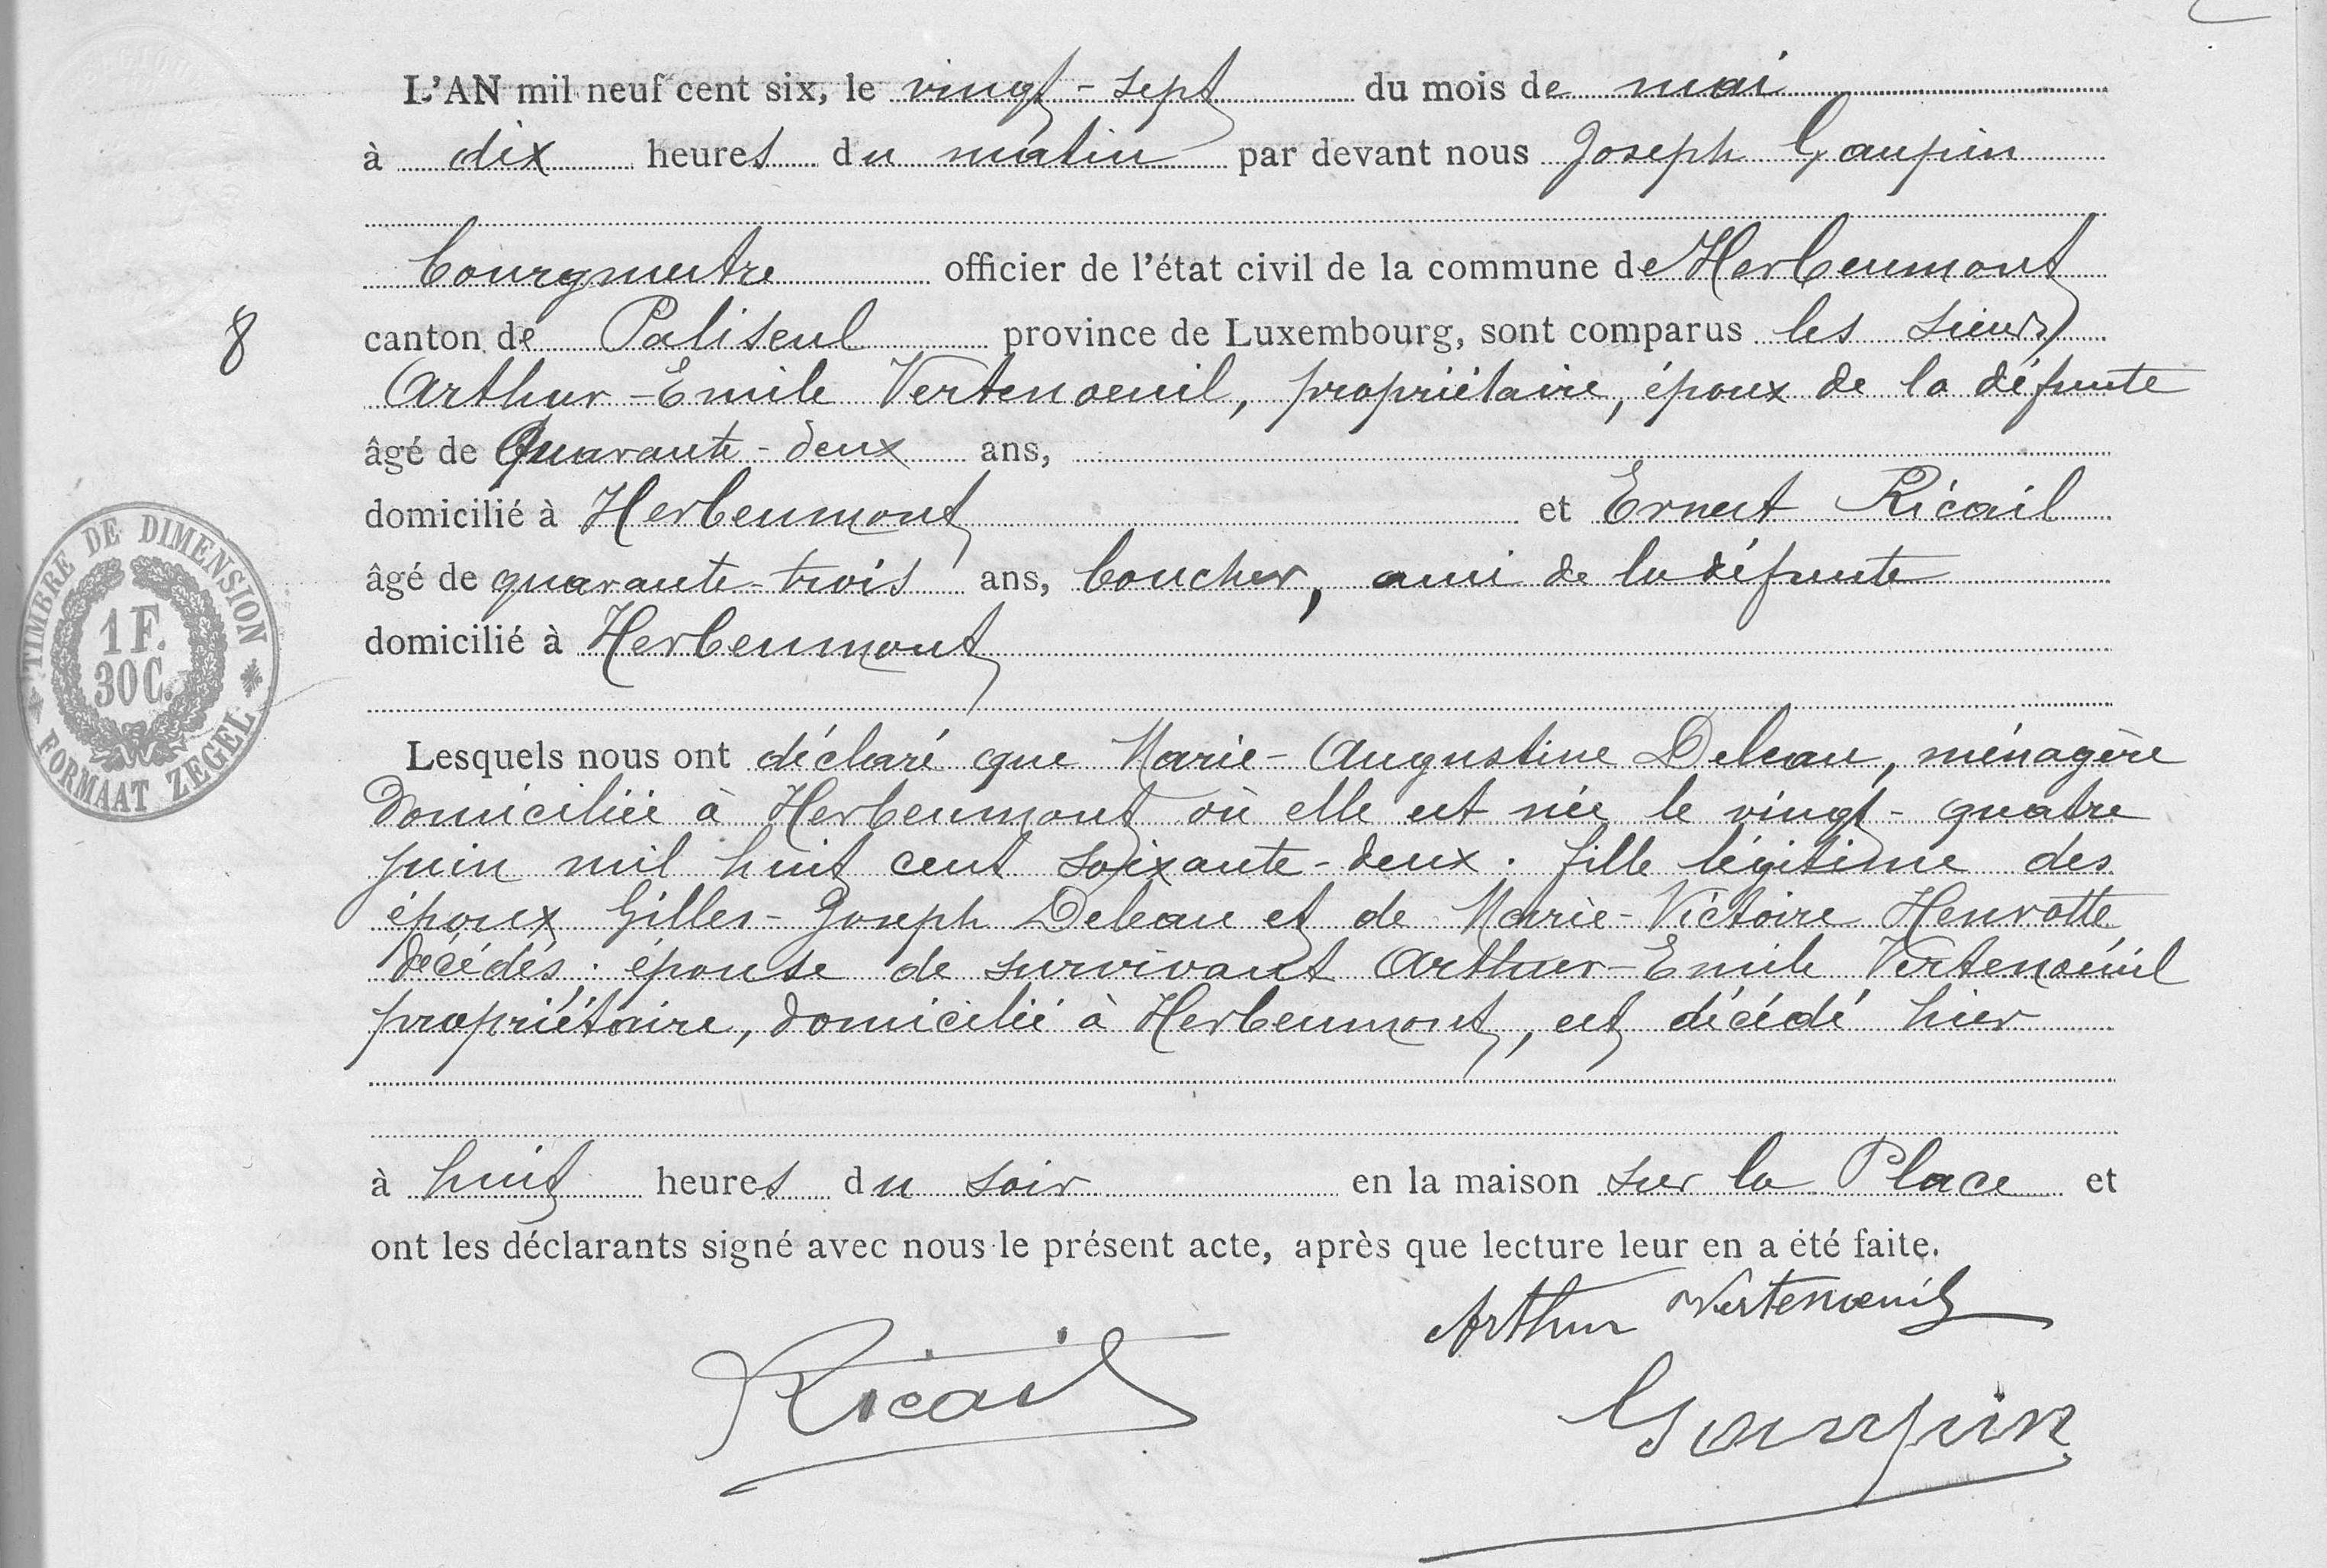 L'AN mil neuf cent six, le vingt-sept du mois de mai
à dix heures du matin par devant nous Joseph Gaupin
bourgmestre officier de l'état civil de la commune de Herbeumont
8
canton de Paliseul province de Luxembourg, sont comparus les sieurs
Arthur-Emile Vertenoeuil, propriétaire, époux de la défunte
âgé de Quarante-deux ans,
domicilié à Herbeumont et Ernest Ricail
âgé de quarante-trois ans, boucher, ami de la défunte
domicilié à Herbeumont
TIMBRE DE DIMENSION
1 F.
30 C.
FORMAAT ZEGEL
Lesquels nous ont déclaré que Marie-Augustine Deleau, ménagère
domiciliée à Herbeumont où elle est née le vingt-quatre
juin mil huit cent soixante-deux : fille légitime des
époux Gilles-Joseph Deleau et de Marie-Victoire Henrotte
décédés ; épouse de survivant Arthur-Emile Vertenoeuil
propriétaire, domicilié à Herbeumont, est décédé hier
à huit heures du soir en la maison sur la Place et
ont les déclarants signé avec nous le présent acte, après que lecture leur en a été faite.
Arthur Vertenoeuil
Ricail
Gaupin